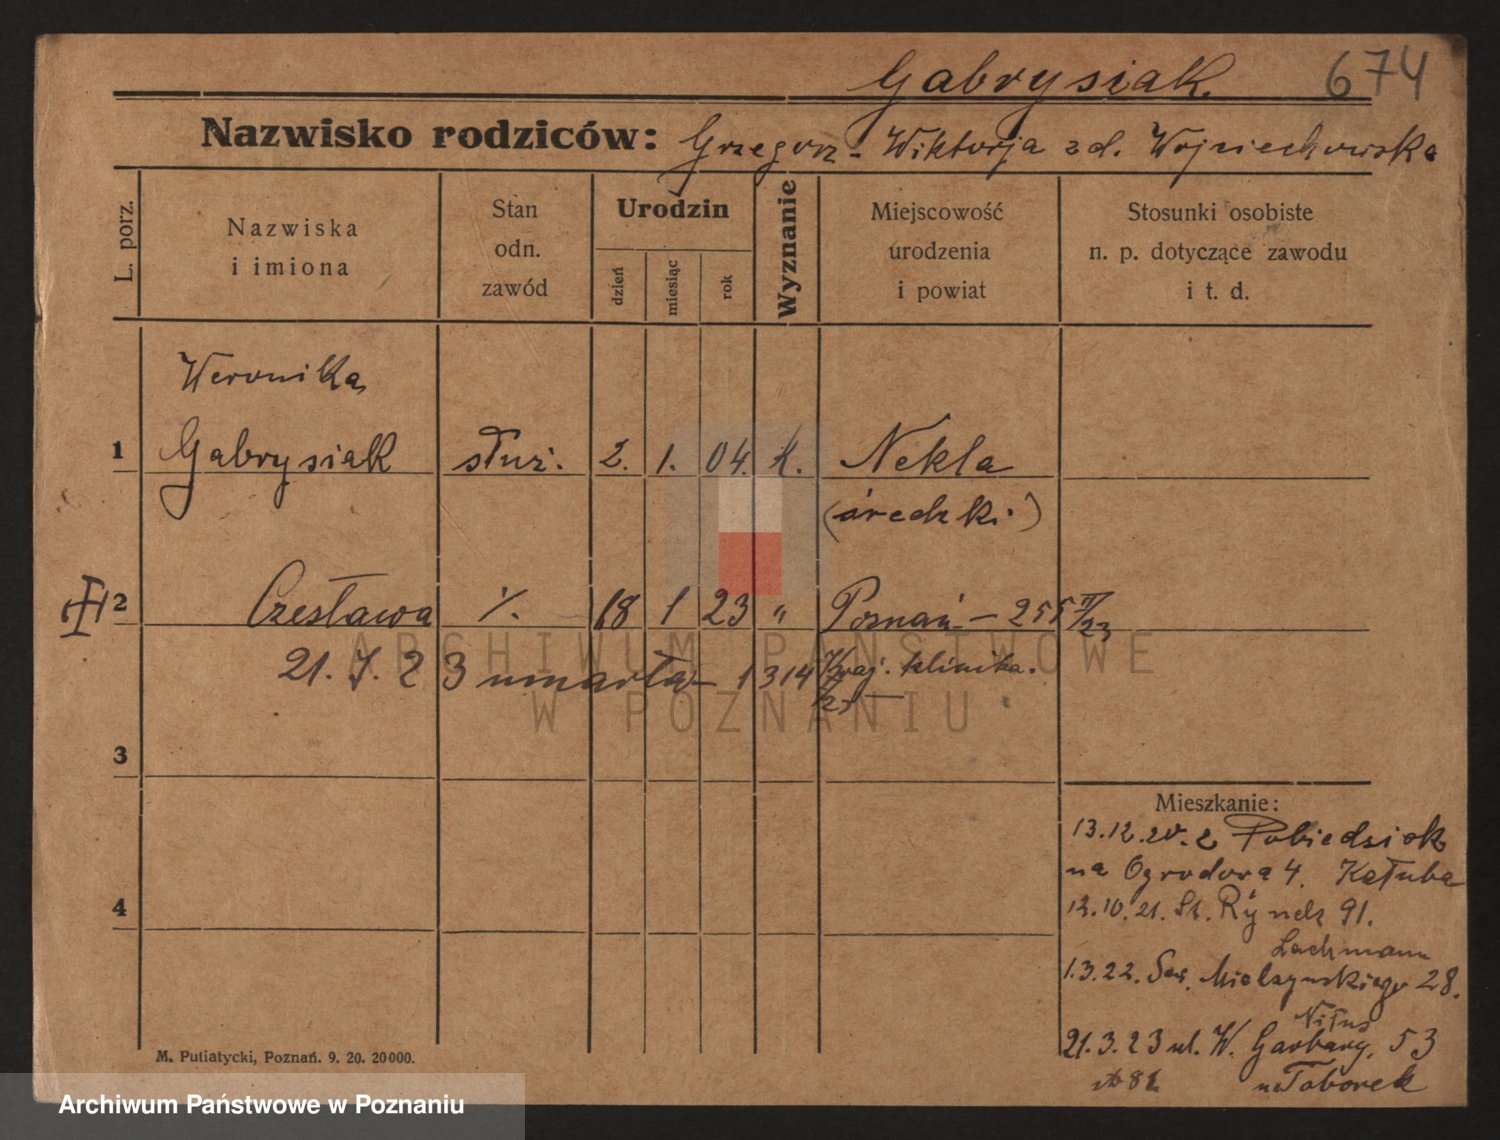 Gabrysiak. 674
Nazwisko rodziców: Grzegorz - Wiktorja zd. Wojciechowska
L. porz.
Nazwiska
i imiona
Stan
odn.
zawód
Urodzin
dzień
miesiąc
rok
Wyznanie
Miejscowość
urodzenia
i powiat
Stosunki osobiste
n. p. dotyczące zawodu
i t. d.
Weronika
1 Gabrysiak służ. 2. 1. 04. k. Nekla
(średzki)
2 Czesława %. 18 1 23 " Poznań - 255 II/23
21. 7. 23 umarła - 1314 Kraj. klinika.
3
4
Mieszkanie:
13.12.20. z Pobiedzisk
na Ogrodowa 4. Kałuba
12.10.21. St. Rynek 91.
Lachmann
1.3.22. Sew. Mielżyńskiego 28.
Nitus
21.3.23 ul. W. Garbary. 53
u Taborek
M. Putiatycki, Poznań. 9. 20. 20000.
ARCHIWUM PAŃSTWOWE
W POZNANIU
Archiwum Państwowe w Poznaniu